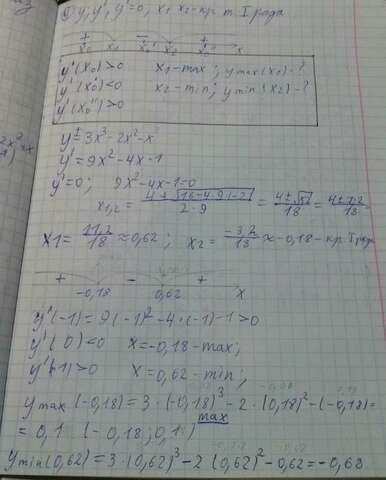 ① y, y', y'=0, x₁ x₂-кр. т. I рода
+ − +
x₀ x₁ x₀' x₂ x₀'' x
y'(x₀)>0 x₁-max; ymax(x₁)-?
y'(x₀')<0 x₂-min; ymin(x₂)-?
y'(x₀'')>0
y=3x³-2x²-x
y'=9x²-4x-1
y'=0; 9x²-4x-1=0
x₁,₂ = = 4±√52/18 = 4±7,2/18
x₁= 11,2/18 ≈0,62; x₂= -3,2/18 ≈-0,18-кр. I рода
+ − +
-0,18 0,62 x
y'(-1)=9(-1)²-4·(-1)-1>0
y'(0)<0 x=-0,18-max;
y'(+1)>0 x=0,62-min;
ymax(-0,18)=3·(-0,18)³-2·(0,18)²-(-0,18)=
=0,1 (-0,18;0,1) max
ymin(0,62)=3·(0,62)³-2(0,62)²-0,62=-0,68